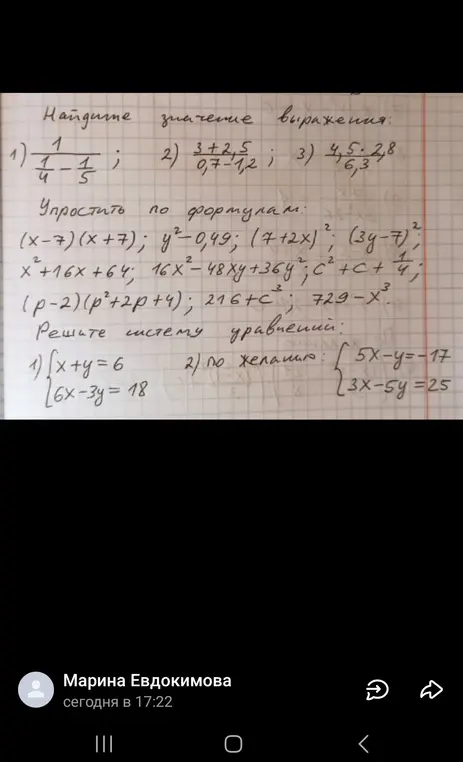 Найдите значение выражения:
1) 1/(1/4 - 1/5) ; 2) (3+2,5)/(0,7-1,2) ; 3) (4,5·2,8)/6,3
Упростить по формулам:
(x-7)(x+7); y²-0,49; (7+2x)²; (3y-7)²;
x²+16x+64; 16x²-48xy+36y²; c²+c+1/4;
(p-2)(p²+2p+4); 216+c³; 729-x³.
Решите систему уравнений:
1) { x+y=6 2) по желанию: { 5x-y=-17
6x-3y=18 3x-5y=25
Марина Евдокимова
сегодня в 17:22